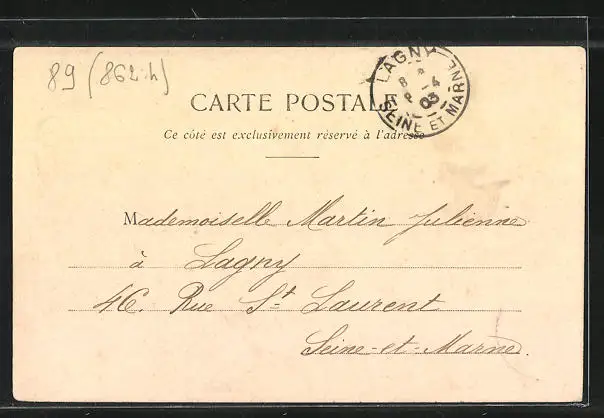 89 (862.h)
LAGNY
8 -4
03
SEINE ET MARNE
CARTE POSTALE
Ce côté est exclusivement réservé à l'adresse
Mademoiselle Martin Julienne
à Lagny
46. Rue St Laurent
Seine-et-Marne.